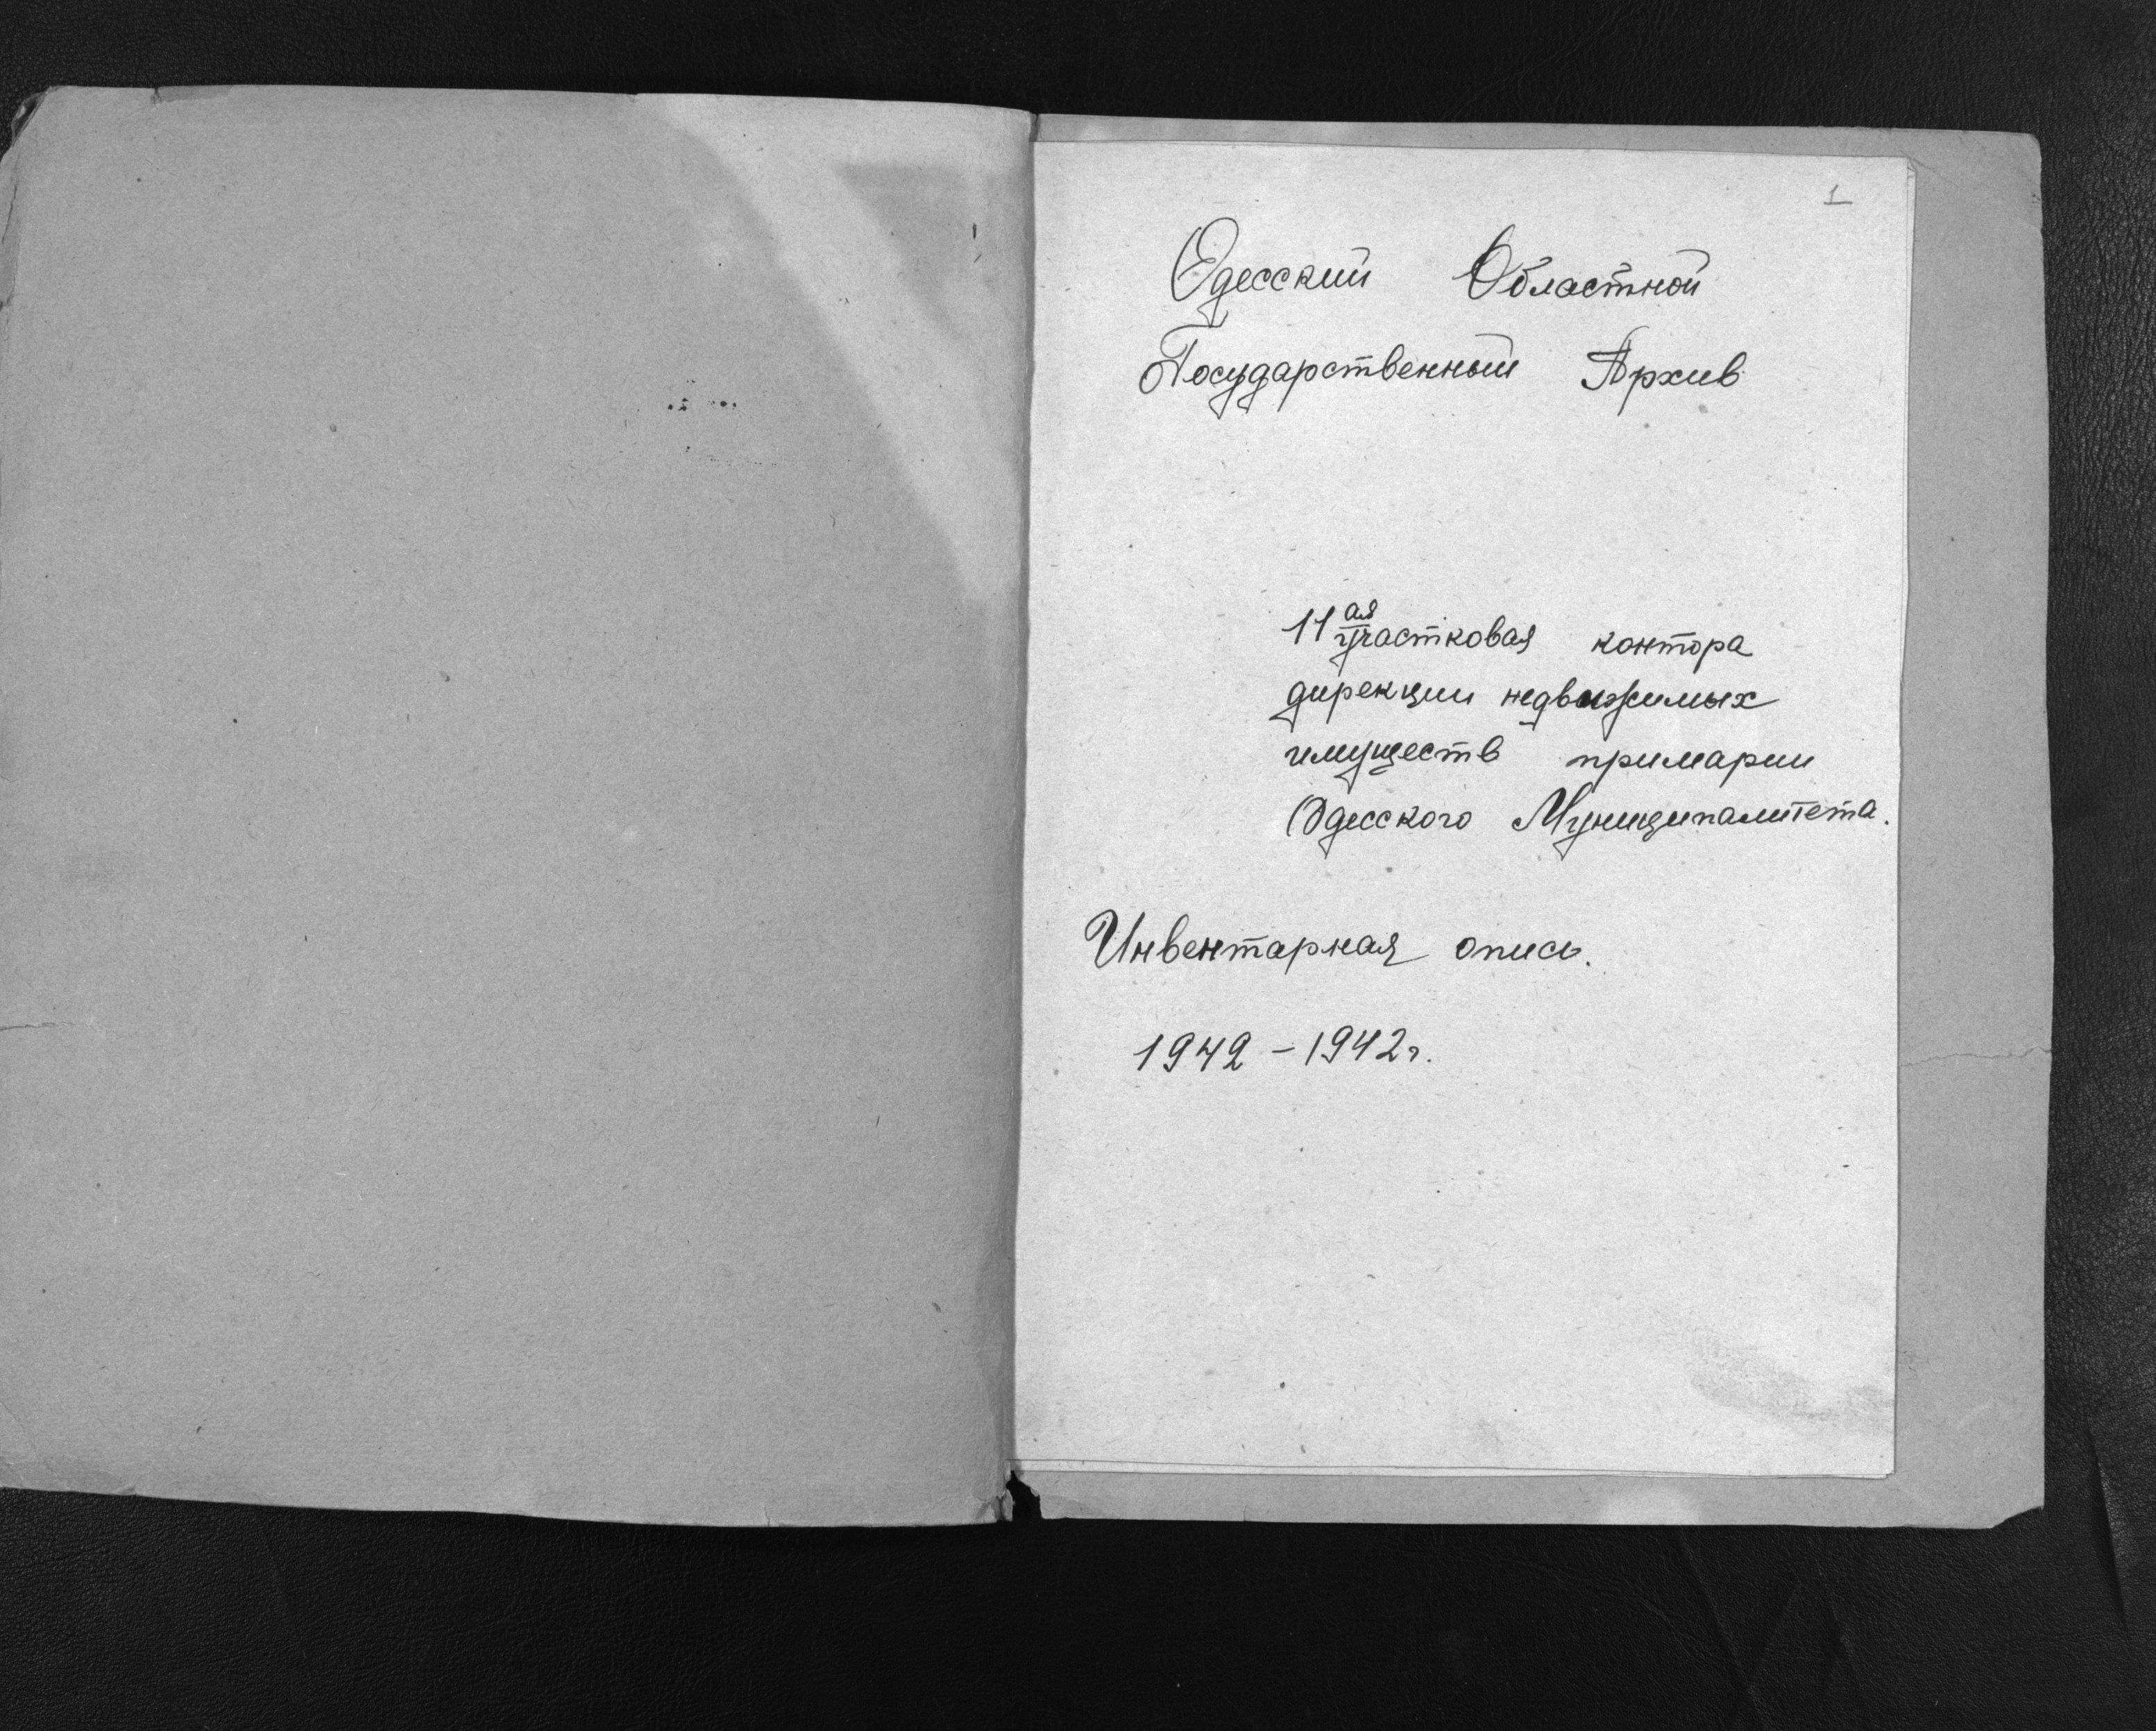 1
Одесский Областной
Государственный Архив
11ая участковая контора
дирекции недвижимых
имуществ примарии
Одесского Муниципалитета.
Инвентарная опись.
1942 – 1942г.